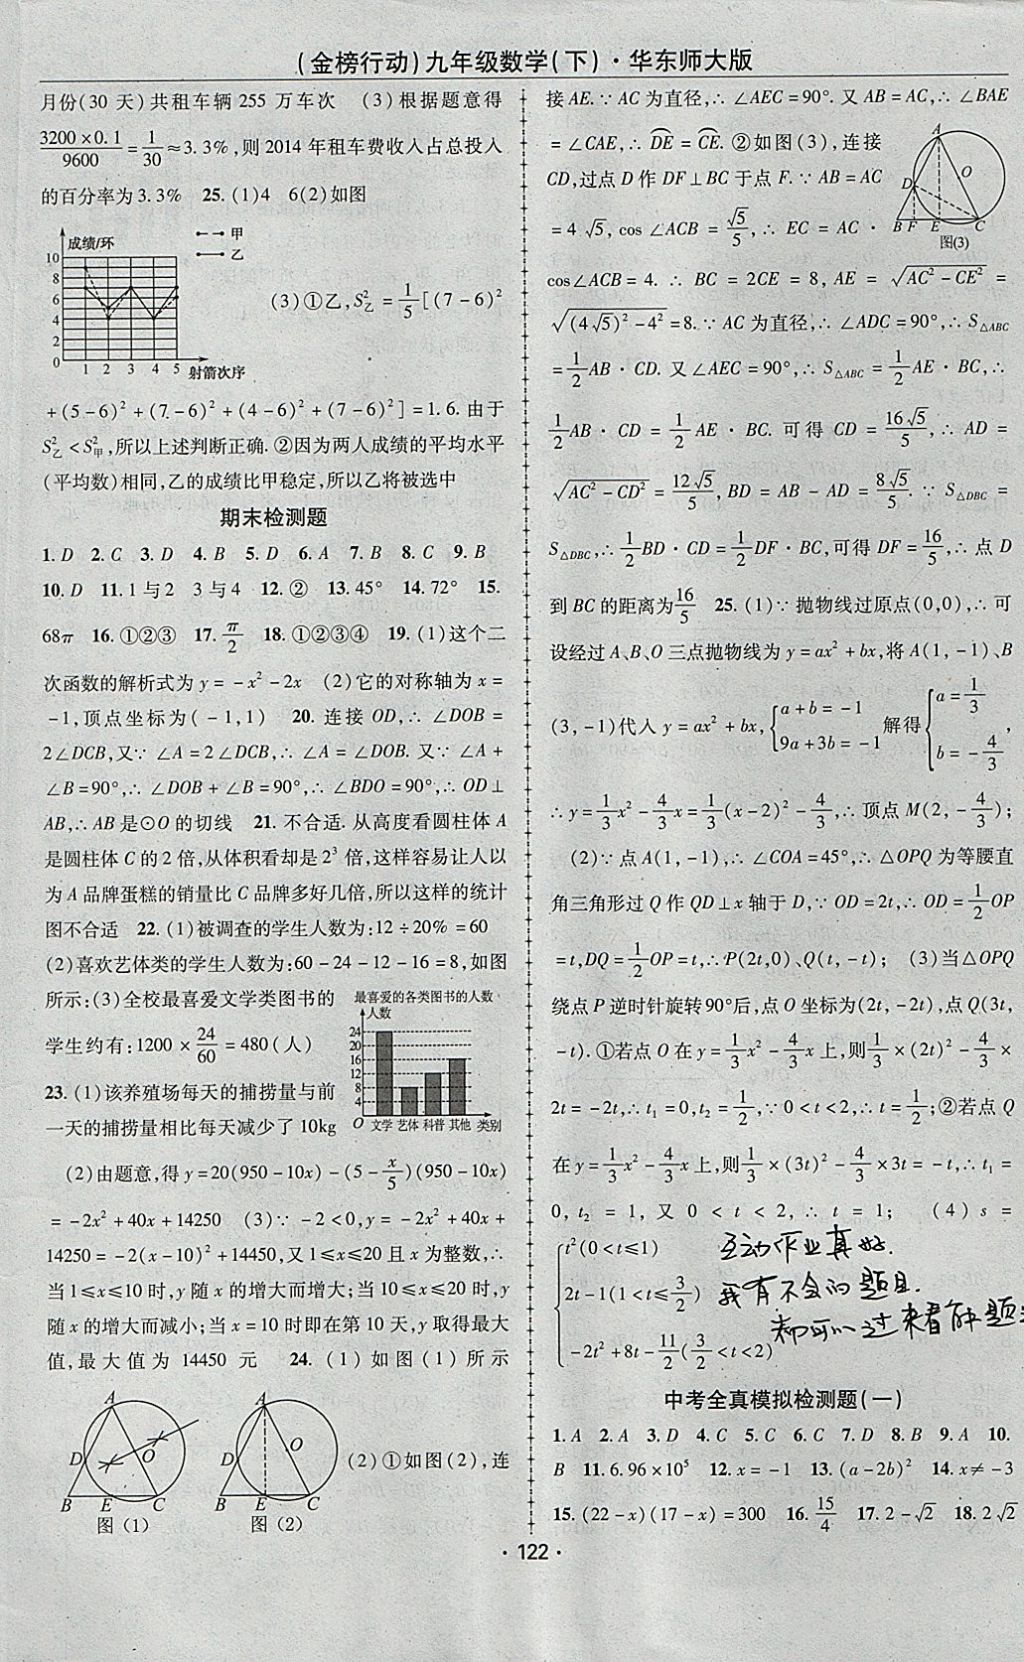 (金榜行动)九年级数学(下)·华东师大版
月份(30 天)共租车辆 255 万车次 (3)根据题意得
3200×0.1/9600=1/30≈3.3%,则 2014 年租车费收入占总投入
的百分率为 3.3% 25. (1)4 6(2)如图
成绩/环
甲
乙
10
8
6
4
2
0
1 2 3 4 5 射箭次序
(3)①乙,S²乙=1/5[(7-6)²
+(5-6)²+(7-6)²+(4-6)²+(7-6)²]=1.6. 由于
S²乙<S²甲,所以上述判断正确. ②因为两人成绩的平均水平
(平均数)相同,乙的成绩比甲稳定,所以乙将被选中
期末检测题
1. D 2. C 3. D 4. B 5. D 6. A 7. B 8. C 9. B
10. D 11. 1 与 2 3 与 4 12. ② 13. 45° 14. 72° 15.
68π 16. ①②③ 17. π/2 18. ①②③④ 19. (1)这个二
次函数的解析式为 y=-x²-2x (2)它的对称轴为 x=
-1,顶点坐标为(-1,1) 20. 连接 OD,∴∠DOB=
2∠DCB,又∵∠A=2∠DCB,∴∠A=∠DOB. 又∵∠A+
∠B=90°,∴∠DOB+∠B=90°,∴∠BDO=90°,∴OD⊥
AB,∴AB 是⊙O 的切线 21. 不合适. 从高度看圆柱体 A
是圆柱体 C 的 2 倍,从体积看却是 2³ 倍,这样容易让人以
为 A 品牌蛋糕的销量比 C 品牌多好几倍,所以这样的统计
图不合适 22. (1)被调查的学生人数为:12÷20%=60
(2)喜欢艺体类的学生人数为:60-24-12-16=8,如图
所示:(3)全校最喜爱文学类图书的
学生约有:1200×24/60=480(人)
最喜爱的各类图书的人数
人数
24
20
16
12
8
4
O 文学 艺体 科普 其他 类别
23. (1)该养殖场每天的捕捞量与前
一天的捕捞量相比每天减少了 10kg
(2)由题意,得 y=20(950-10x)-(5-x/5)(950-10x)
=-2x²+40x+14250 (3)∵-2<0,y=-2x²+40x+
14250=-2(x-10)²+14450,又 1≤x≤20 且 x 为整数,∴
当 1≤x≤10 时,y 随 x 的增大而增大;当 10≤x≤20 时,y
随 x 的增大而减小;当 x=10 时即在第 10 天,y 取得最大
值,最大值为 14450 元 24. (1)如图(1)所示
A
D
O
B E C
图 (1)
A
D
O
B E C
图 (2)
(2)①如图(2),连
接 AE.∵AC 为直径,∴∠AEC=90°. 又 AB=AC,∴∠BAE
=∠CAE,∴DE=CE. ②如图(3),连接
CD,过点 D 作 DF⊥BC 于点 F.∵AB=AC
=4√5,cos∠ACB=√5/5,∴EC=AC·
A
D
O
B F E C
图(3)
cos∠ACB=4.∴BC=2CE=8,AE=√(AC²-CE²)=
√((4√5)²-4²)=8.∵AC 为直径,∴∠ADC=90°,∴S△ABC
=1/2AB·CD. 又∠AEC=90°,∴S△ABC=1/2AE·BC,∴
1/2AB·CD=1/2AE·BC. 可得 CD=16√5/5,∴AD=
√(AC²-CD²)=12√5/5,BD=AB-AD=8√5/5.∵S△DBC=
S△DBC,∴1/2BD·CD=1/2DF·BC,可得 DF=16/5,∴点 D
到 BC 的距离为 16/5 25. (1)∵抛物线过原点(0,0),∴可
设经过 A、B、O 三点抛物线为 y=ax²+bx,将 A(1,-1)、B
(3,-1)代人 y=ax²+bx,{a+b=-1 9a+3b=-1 解得{a=1/3 b=-4/3,
∴y=1/3x²-4/3x=1/3(x-2)²-4/3,∴顶点 M(2,-4/3);
(2)∵点 A(1,-1),∴∠COA=45°,∴△OPQ 为等腰直
角三角形过 Q 作 QD⊥x 轴于 D,∵OD=2t,∴OD=1/2OP
=t,DQ=1/2OP=t,∴P(2t,0)、Q(t,-t); (3)当△OPQ
绕点 P 逆时针旋转 90°后,点 O 坐标为(2t,-2t),点 Q(3t,
-t). ①若点 O 在 y=1/3x²-4/3x 上,则1/3×(2t)²-4/3×
2t=-2t,∴t₁=0,t₂=1/2,∵0<t<2,∴t=1/2;②若点 Q
在 y=1/3x²-4/3x 上,则1/3×(3t)²-4/3×3t=-t,∴t₁=
0,t₂=1,又 0<t<2,∴t=1; (4)s=
{t²(0<t≤1)
2t-1(1<t≤3/2)
-2t²+8t-11/2(3/2<t<2)
互动作业真好.
我有不会的题目.
都可以过来看解题
中考全真模拟检测题(一)
1. A 2. A 3. D 4. C 5. C 6. C 7. D 8. B 9. A 10.
B 11. 6.96×10⁵ 12. x=-1 13. (a-2b)² 14. x≠-3
15. (22-x)(17-x)=300 16. 15/4 17. 2-√2 18. 2√2
·122·